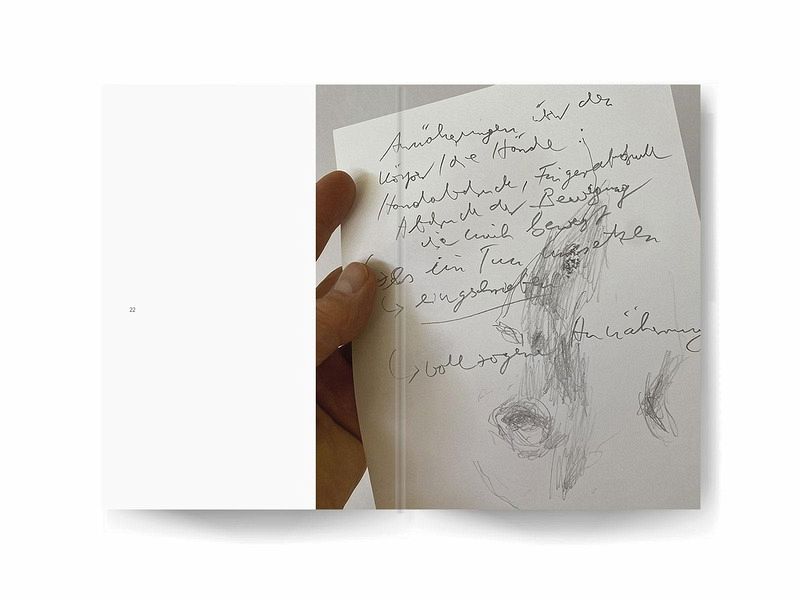 22
Annäherungen über den
Körper / die Hände :
Handabdruck, Fingerabdruck
Abdruck der Bewegung
die mich bewegt
als ein Tun umsetzen
↳ eingeschrieben
↳ vollzogene Annäherung